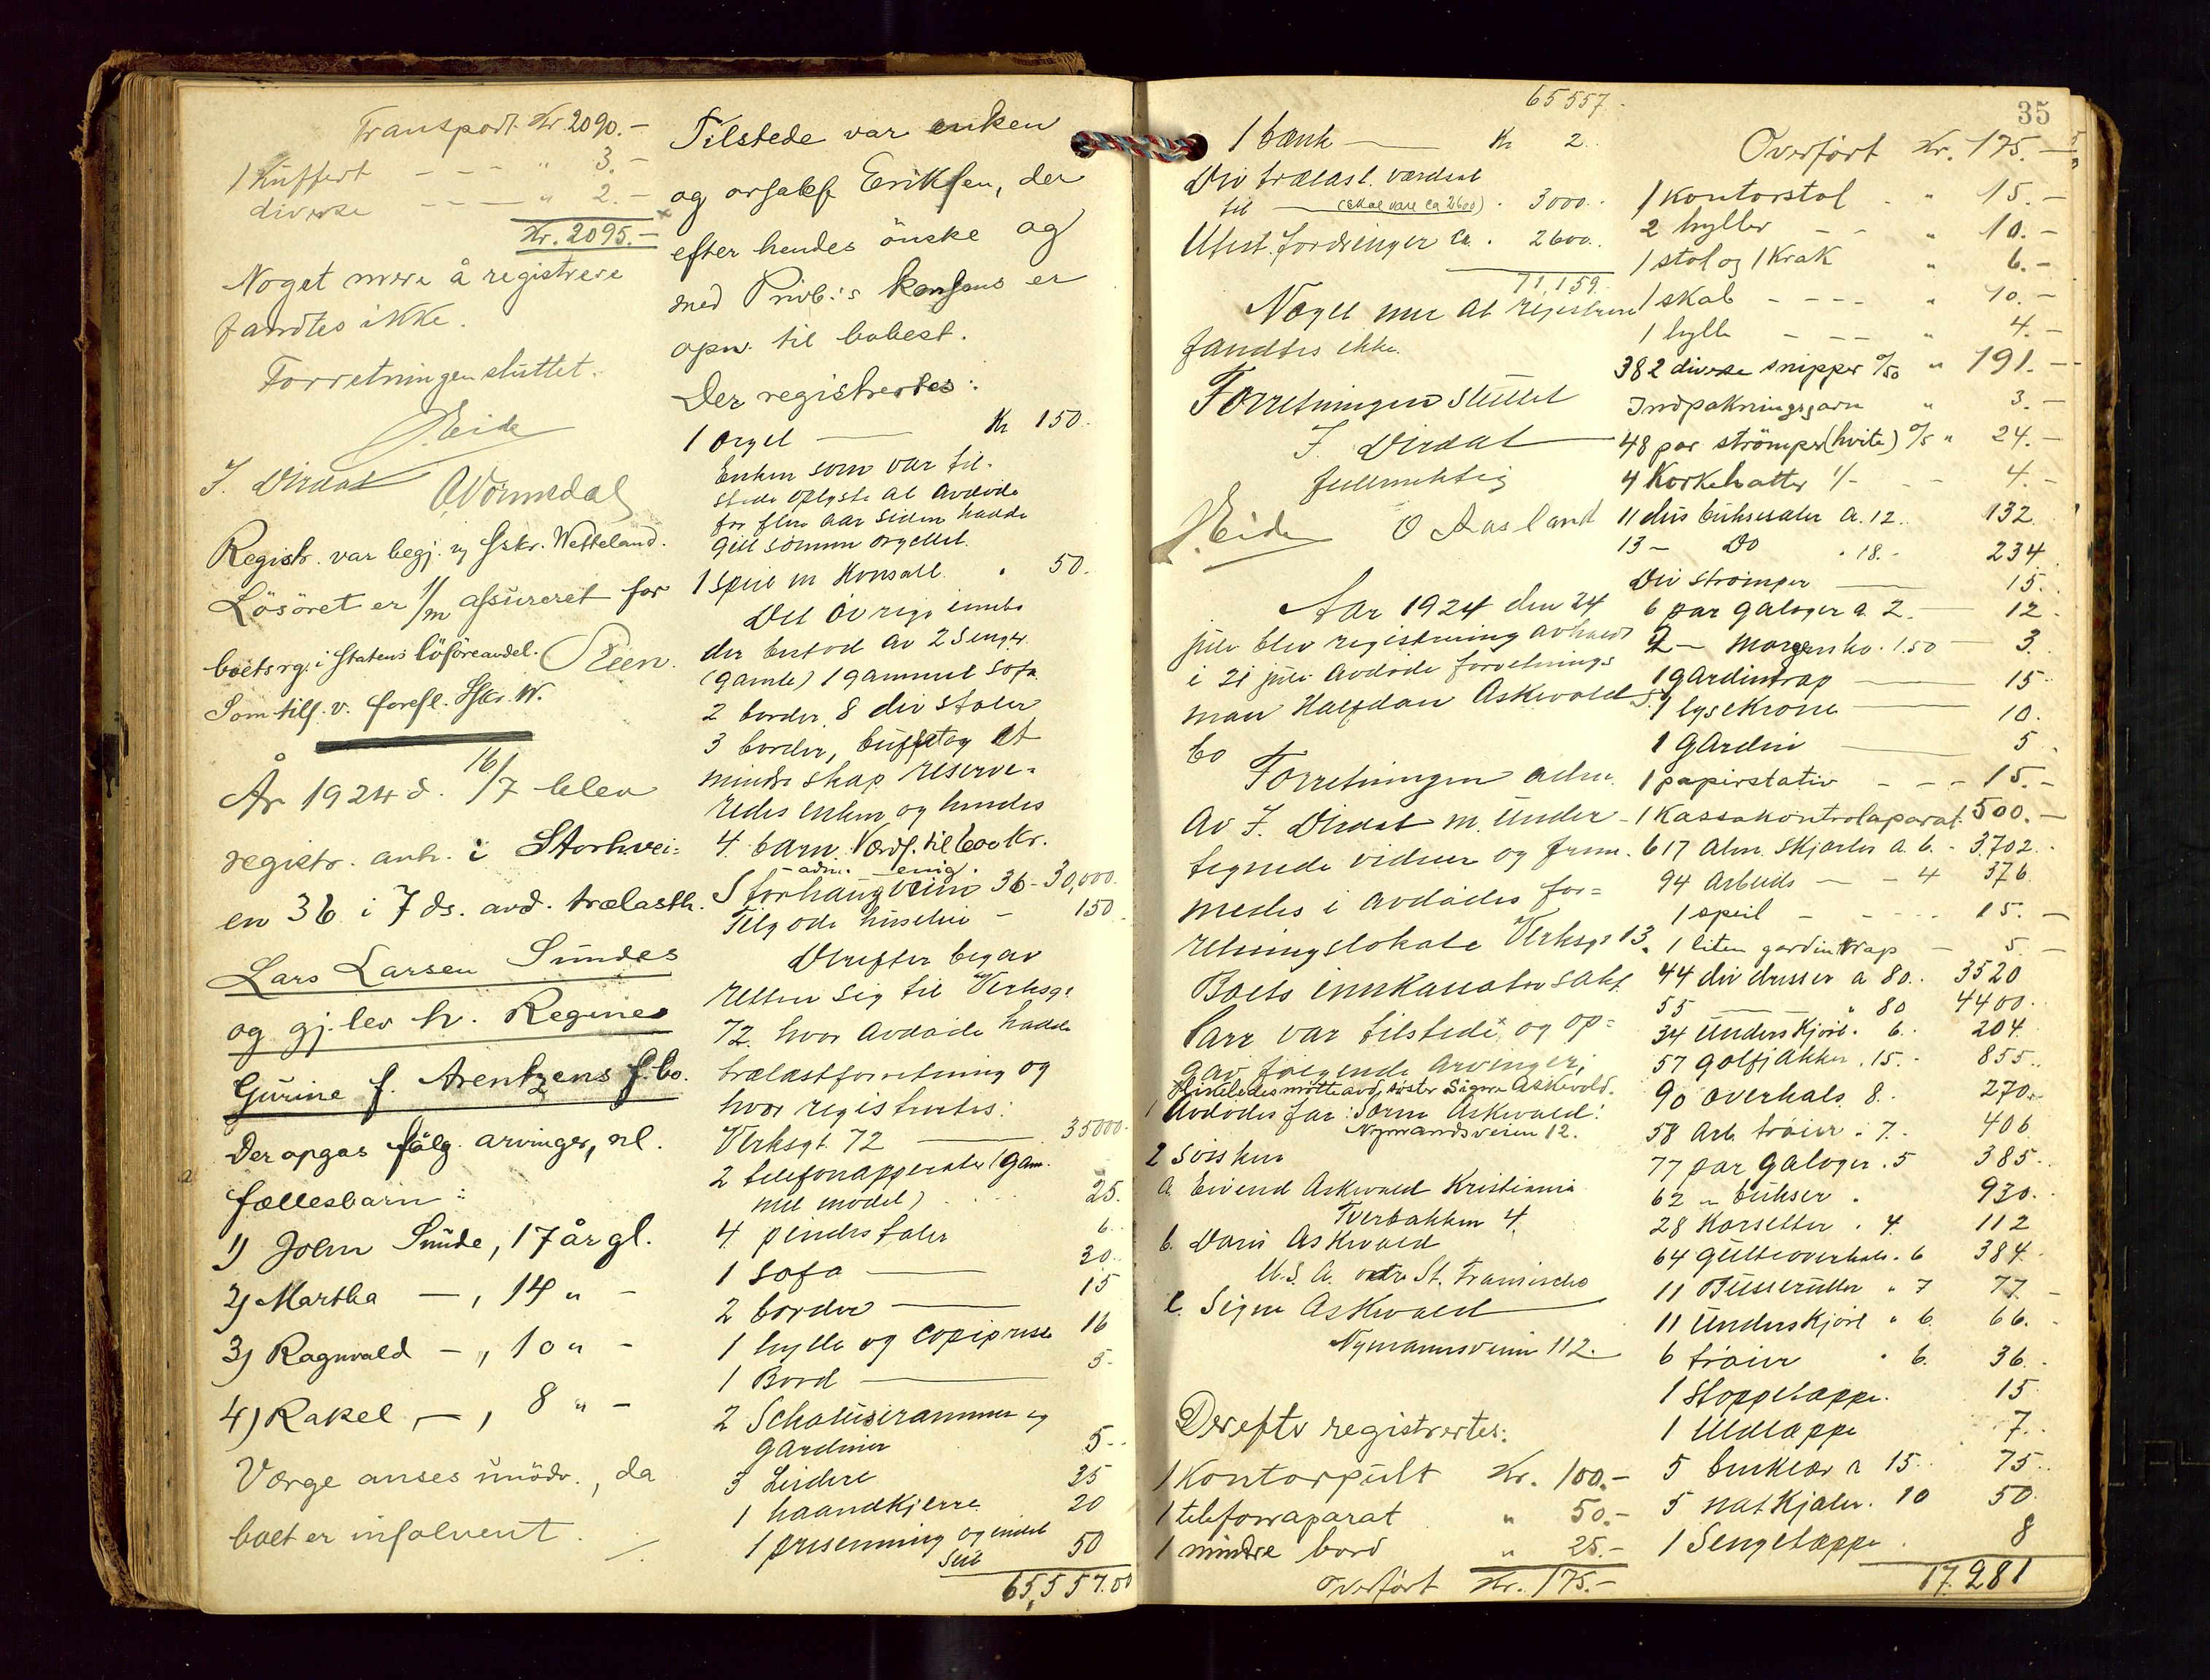 Transport Kr 2090.-
1 Kuffert - - - " 3.-
diverse - - - " 2.-
Kr. 2095.-
Noget mere å registrere
fandtes ikke.
Forretningen sluttet.
J. Eide
J. Dirdal
Registr. var begj. Wetteland.
Lösöret er 1/1 m assureret for
boets rg. i Statens
Som tilf. v. W.
År 1924 d. 16/7 blev
registr. anh. i Storhvei-
en 36 i 7 ds. avd. trælasth.
Lars Larsen Sundes
og gj.lev h. Regine
Gurine f. Arentzens f.bo.
Der opgas fålg. arvinger, nl.
fællesbarn:
1) John Sunde, 17 år gl.
2) Martha - , 14 " -
3) Ragnvald - , 10 " -
4) Rakel, - , 8 " -
Værge anses unödv., da
boet er insolvent.
Tilstede var enken
og orsakf Eriksen, der
efter hendes önske og
med konsens er
opn. til bobest.
Der registrertes:
1 orgel — Kr 150.
Enken som var til-
stede oplyste at avdöde
for flere aar siden hadde
git sönnen orgellet.
1 speil m Konsoll. " 50.
Det övrige innbo
der bestod av 2 senger
(gamle) 1 gammel sofa
2 border, 8 div stoler
3 border, buffet og et
mindre skap reserve-
redes enken og hendes
4 barn. Værdf. til 600 kr.
- adm. enig.
Storhaugveien 36 - 30,000.
Tilgode husleie - 150.
Derefter begav
retten sig til Verksgt
72. hvor avdöde hadde
trælastforretning og
hvor registrertes:
Verksgt. 72 — 35000.
2 telefonapperater (gam-
mel model) 25.
4 pindestoler 6.
1 sofa — 20..
2 border — 15
1 hylle og copipresse 16
1 Bord — 5.
2 og
gardiner 5..
3 25
1 haandkjerre 20
1 presenning og endel
50
65,557.00
35
65557.-
1 bænk — Kr 2.
Div trælast. værdsat
til — (skal være ca 2600) . 3000.
Utest. fordringer ca. . 2600..
71,159.
Noget mer at registrere
fandtes ikke.
Forretningen sluttet
J. Dirdal
fullmektig
J. Eide O Aasland
Aar 1924 den 24
juli blev registrering avholdt
i 21 juli avdöde forretnings
man Halfdan Askevolds
bo
Forretningen adm.
av J. Dirdal m. under-
tegnede vidner og frem-
medes i avdödes for=
retningslokale Verksgt 13.
Boets innkallator sakf.
Parr var tilstede x og op-
gav følgende arvinger;
x likeledes mötte avd. söster Signe Askevold.
1 Avdödes far: Sören Askevold:
Nymandsveien 12.
2 söisken
a. Eivend Askevold Kristiania
Tverbakken 4.
b. Doris Askevold
U.S.A. St. Francisco
c. Signe Askevold
Nymannsveien 112.
Derefter registrertes:
1 Kontorpult Kr. 100.-
1 telefonaparat " 50.-
1 mindre bord " 25.-
overfört Kr. 175.-
Overfört Kr. 175.-
1 Kontorstol " 15.-
2 hyller - - " 10.-
1 stol og 1 Krak " 6.-
1 skab - - - - " 10.-
1 hylle - - - " 4.-
382 diverse snipper o/50 " 191.-
Indpakningsgarn " 3.-
48 par strömper (hvite) o/5 " 24.-
4 Korkehatter 1/- - - 4.-
11 dus buksesæler a. 12. 132.
13 - Do " 18.- 234
Div strömper — 15.
6 par galoger a. 2. — 12.
2 - morgensko . 1.50 — 3.
1 gardintrap — 15.
1 lysekrone — 10.
1 gardin — 5.
1 papirstativ - - - 15.-
1 Kassakontrolaparat. 500.-
617 Alm. skjorter a. 6. - 3702.-
94 Arbeids — - 4 376.
1 speil - - - - 15.-
1 liten gardintrap - 5.-
44 div dresser a 80.. 3520
55 — " 80 4400..
34 underskjört . 6. 204.
57 golfjakker . 15.- 855..
90 overhals 8.. 270..
58 Arb. tröier . 7.- 406
77 par galoger . 5 385..
62 " bukser . 930..
28 Korsetter . 4. 112
64 gutteoverhals. 6 384.
11 Busseruller " 7 77.-
11 underskjört " 6. 66.-
6 tröier " 6. 36..
1 Stoppetæppe. 15
1 Uldtæppe 7..
5 benklær a 15.. 75..
5 natkjoler. 10 50.
1 Sengetæppe . 8
17.281